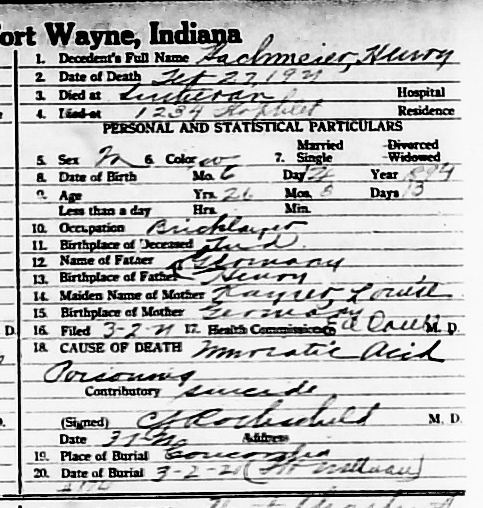 ort Wayne, Indiana
1. Decedent's Full Name Hachmeier, Henry
2. Date of Death Feb 27, 192
3. Died at Lutheran Hospital
4. Lived at 1234 Residence
PERSONAL AND STATISTICAL PARTICULARS
5. Sex M 6. Color w 7. Married Single Divorced Widowed
8. Date of Birth Mo. 6 Day 14 Year 1894
9. Age Yrs. 26 Mos. 8 Days 13
Less than a day Hrs. Min.
10. Occupation Bricklayer
11. Birthplace of Deceased Ind
12. Name of Father Germany
13. Birthplace of Father Henry
14. Maiden Name of Mother Kayser, Louise
15. Birthplace of Mother Germany
16. Filed 3-2-21 17. Health Commissioner M. D.
18. CAUSE OF DEATH Muriatic Acid
Poisoning
Contributory suicide
(Signed) M. D.
Date Address
19. Place of Burial Concordia
20. Date of Burial 3-2-20